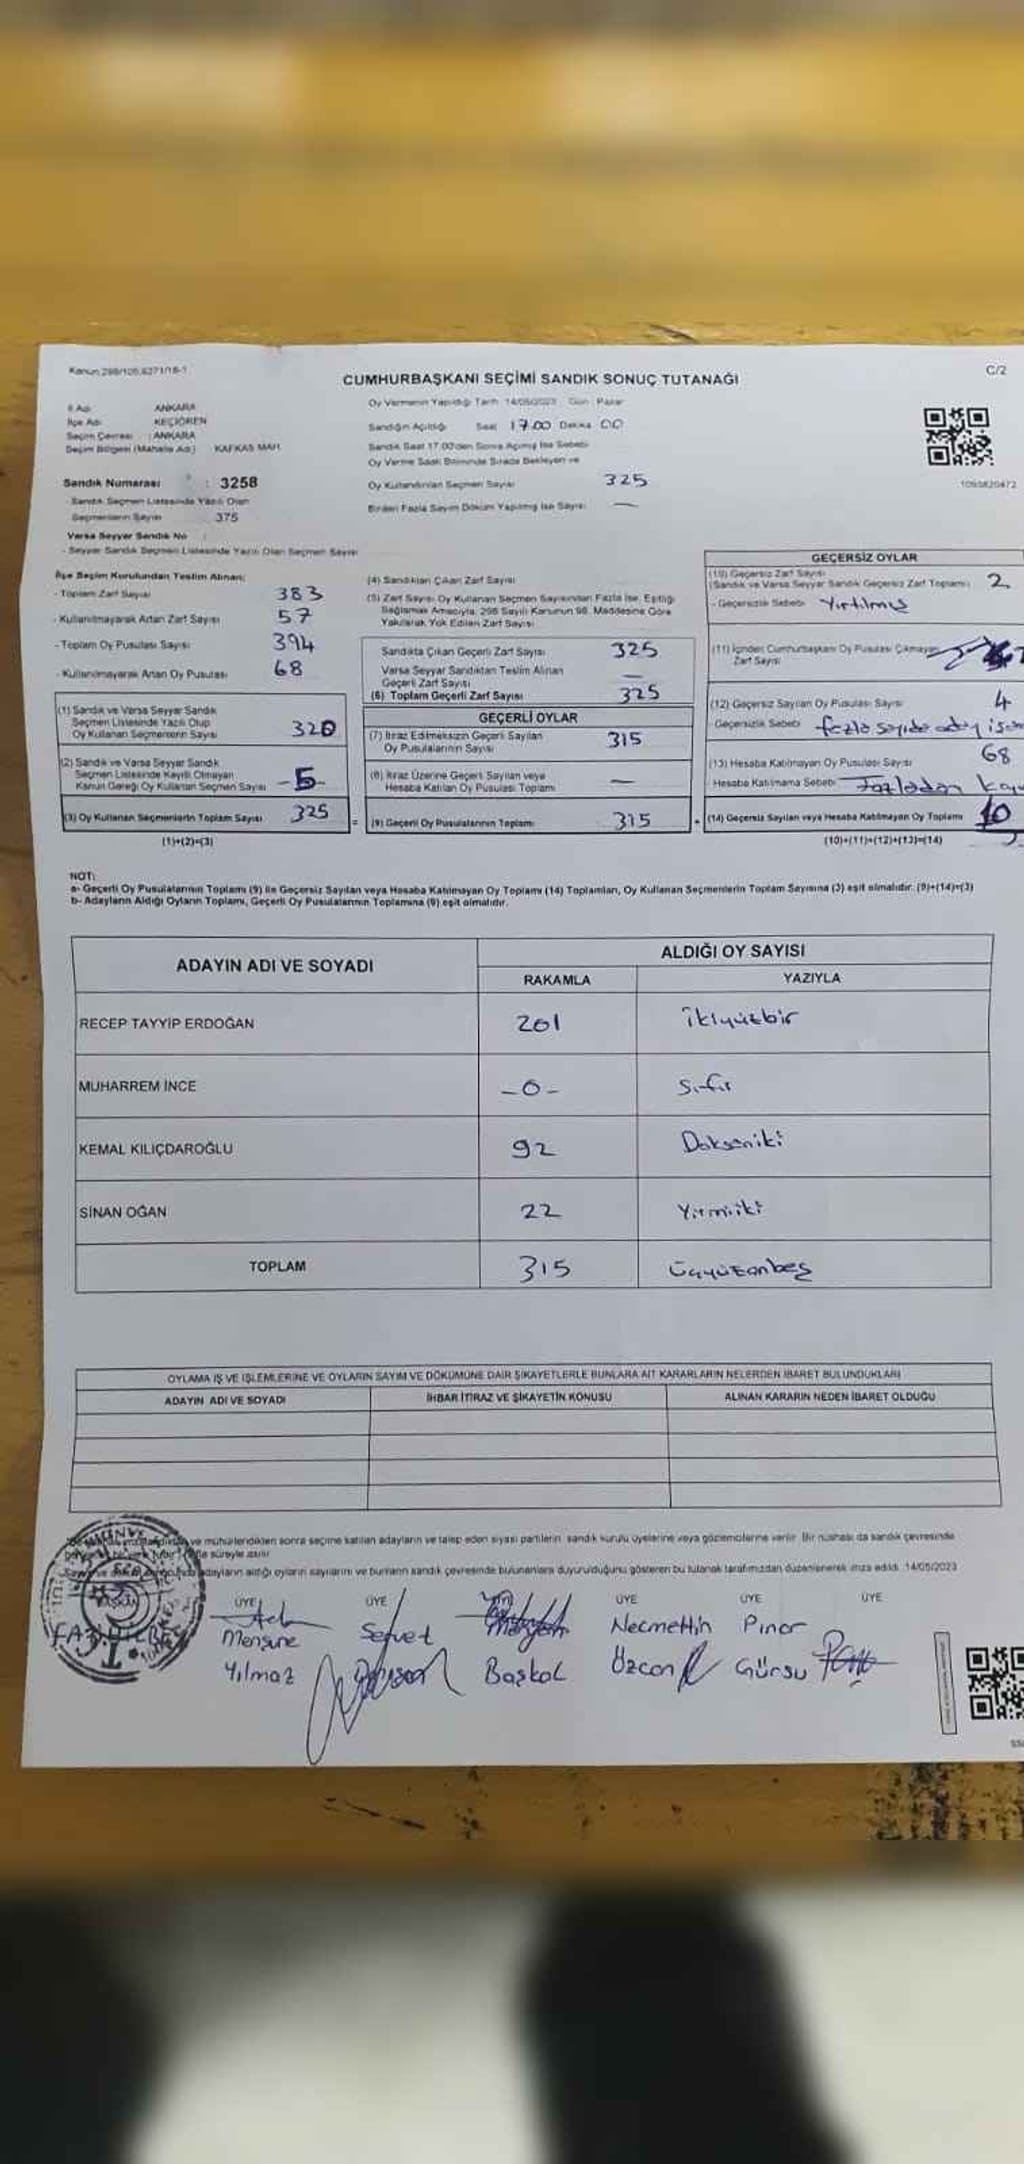 Kanun:298/105,6271/18-1
CUMHURBAŞKANI SEÇİMİ SANDIK SONUÇ TUTANAĞI
C/2
İl Adı : ANKARA
İlçe Adı : KEÇİÖREN
Seçim Çevresi : ANKARA
Seçim Bölgesi (Mahalle Adı) : KAFKAS MAH.
Sandık Numarası : 3258
- Sandık Seçmen Listesinde Yazılı Olan
Seçmenlerin Sayısı 375
Varsa Seyyar Sandık No :
- Seyyar Sandık Seçmen Listesinde Yazılı Olan Seçmen Sayısı
Oy Vermenin Yapıldığı Tarih: 14/05/2023 Gün: Pazar
Sandığın Açıldığı Saat 17.00 Dakika 00
Sandık Saat 17.00'den Sonra Açılmış İse Sebebi
Oy Verme Saati Bitiminde Sırada Bekleyen ve
Oy Kullandırılan Seçmen Sayısı 325
Birden Fazla Sayım Döküm Yapılmış İse Sayısı —
1093820472
İlçe Seçim Kurulundan Teslim Alınan:
- Toplam Zarf Sayısı 383
- Kullanılmayarak Artan Zarf Sayısı 57
- Toplam Oy Pusulası Sayısı 394
- Kullanılmayarak Artan Oy Pusulası 68
(1) Sandık ve Varsa Seyyar Sandık
Seçmen Listesinde Yazılı Olup
Oy Kullanan Seçmenlerin Sayısı 320
(2) Sandık ve Varsa Seyyar Sandık
Seçmen Listesinde Kayıtlı Olmayan
Kanun Gereği Oy Kullanan Seçmen Sayısı -5-
(3) Oy Kullanan Seçmenlerin Toplam Sayısı 325
(1)+(2)=(3)
(4) Sandıktan Çıkan Zarf Sayısı
(5) Zarf Sayısı Oy Kullanan Seçmen Sayısından Fazla İse, Eşitliği
Sağlamak Amacıyla, 298 Sayılı Kanunun 98. Maddesine Göre
Yakılarak Yok Edilen Zarf Sayısı
Sandıkta Çıkan Geçerli Zarf Sayısı 325
Varsa Seyyar Sandıktan Teslim Alınan
Geçerli Zarf Sayısı —
(6) Toplam Geçerli Zarf Sayısı 325
GEÇERLİ OYLAR
(7) İtiraz Edilmeksizin Geçerli Sayılan
Oy Pusulalarının Sayısı 315
(8) İtiraz Üzerine Geçerli Sayılan veya
Hesaba Katılan Oy Pusulası Toplamı —
= (9) Geçerli Oy Pusulalarının Toplamı 315
GEÇERSİZ OYLAR
(10) Geçersiz Zarf Sayısı
(Sandık ve Varsa Seyyar Sandık Geçersiz Zarf Toplamı) 2
- Geçersizlik Sebebi Yırtılmış
(11) İçinden Cumhurbaşkanı Oy Pusulası Çıkmayan
Zarf Sayısı
(12) Geçersiz Sayılan Oy Pusulası Sayısı 4
- Geçersizlik Sebebi fazla sayıda aday
(13) Hesaba Katılmayan Oy Pusulası Sayısı 68
- Hesaba Katılmama Sebebi Fazladan
+ (14) Geçersiz Sayılan veya Hesaba Katılmayan Oy Toplamı 10
(10)+(11)+(12)+(13)=(14)
NOT:
a- Geçerli Oy Pusulalarının Toplamı (9) ile Geçersiz Sayılan veya Hesaba Katılmayan Oy Toplamı (14) Toplamları, Oy Kullanan Seçmenlerin Toplam Sayısına (3) eşit olmalıdır. (9)+(14)=(3)
b- Adayların Aldığı Oyların Toplamı, Geçerli Oy Pusulalarının Toplamına (9) eşit olmalıdır.
ADAYIN ADI VE SOYADI
ALDIĞI OY SAYISI
RAKAMLA YAZIYLA
RECEP TAYYİP ERDOĞAN 201 İkiyüzbir
MUHARREM İNCE -0- Sıfır
KEMAL KILIÇDAROĞLU 92 Doksaniki
SİNAN OĞAN 22 Yirmiiki
TOPLAM 315 Üçyüzonbeş
OYLAMA İŞ VE İŞLEMLERİNE VE OYLARIN SAYIM VE DÖKÜMÜNE DAİR ŞİKAYETLERLE BUNLARA AİT KARARLARIN NELERDEN İBARET BULUNDUKLARI
ADAYIN ADI VE SOYADI İHBAR İTİRAZ VE ŞİKAYETİN KONUSU ALINAN KARARIN NEDEN İBARET OLDUĞU
ve mühürlendikten sonra seçime katılan adayların ve talep eden siyasi partilerin sandık kurulu üyelerine veya gözlemcilerine verilir. Bir nüshası da sandık çevresinde
süreyle asılır
adayların aldığı oyların sayılarını ve bunların sandık çevresinde bulunanlara duyurulduğunu gösteren bu tutanak tarafımızdan düzenlenerek imza edildi. 14/05/2023
BAŞKAN
ÜYE ÜYE ÜYE ÜYE ÜYE
Mensure Servet Necmettin Pınar
Yılmaz Başkal Özcan Gürsu